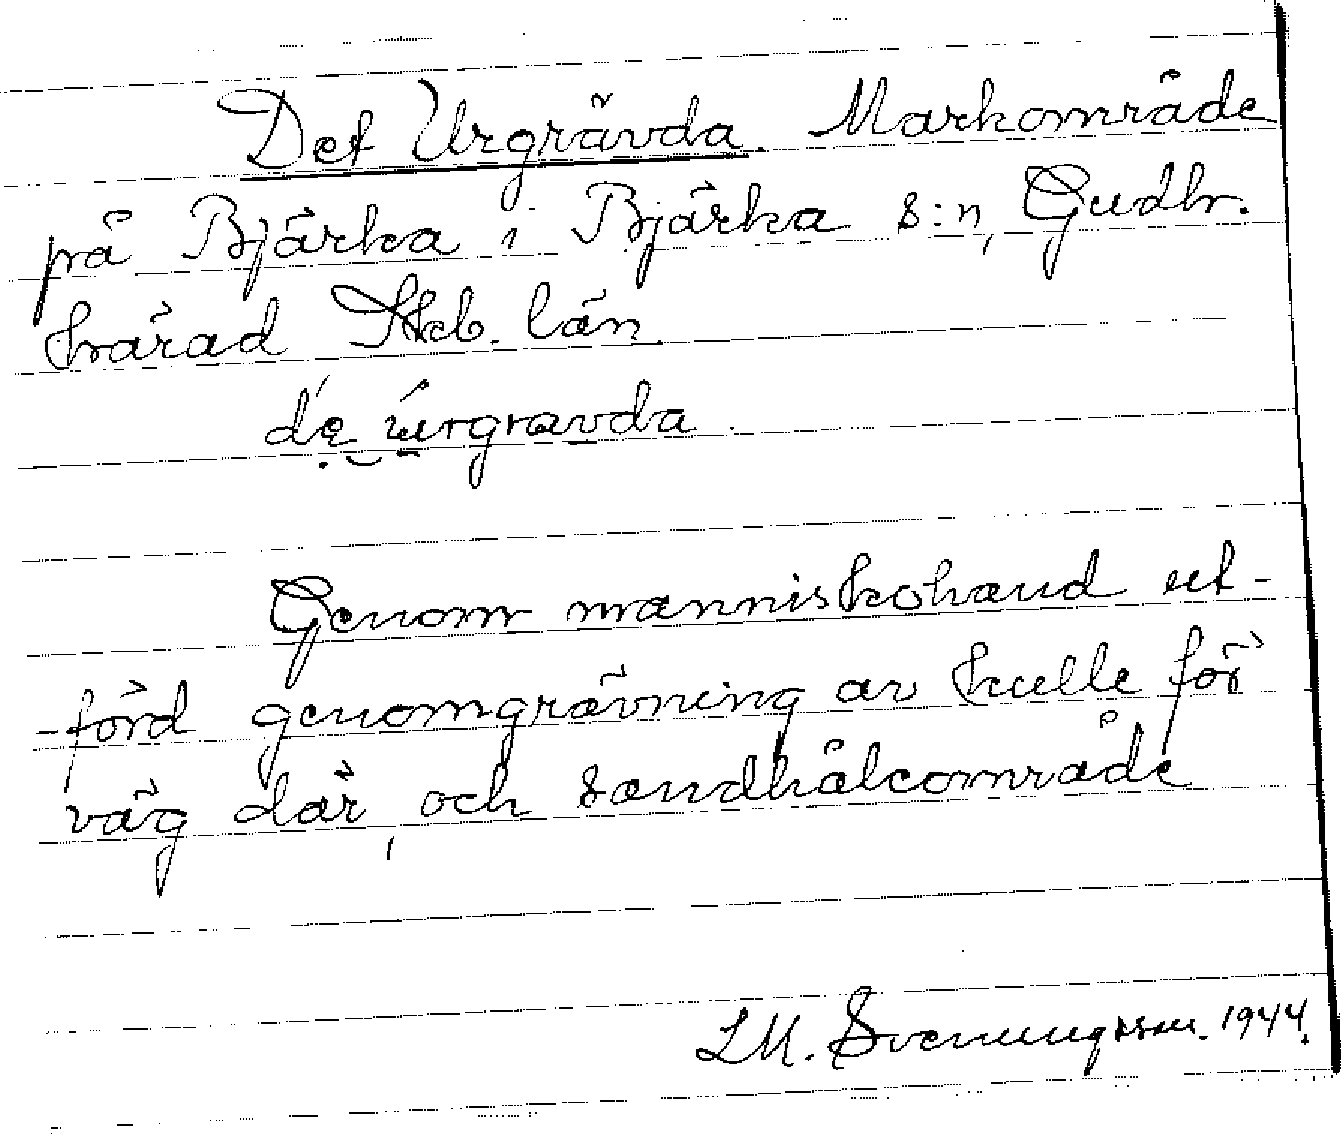 Det Urgrävda. Markområde
på Bjärka i Bjärka s:n, Gudh.
härad Skb. län.
de urgravda
Genom manniskohand ut-
-förd genomgrävning av kulle för
väg där, och sandhålområde
LM. Svenungsson. 1944.